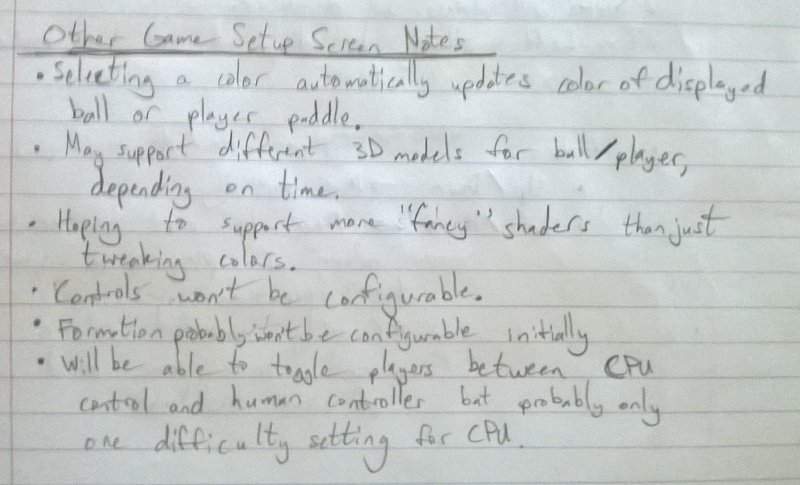 Other Game Setup Screen Notes
• Selecting a color automatically updates color of displayed
ball or player paddle.
• May support different 3D models for ball/player,
depending on time.
• Hoping to support more "fancy" shaders than just
tweaking colors.
• Controls won't be configurable.
• Formation probably won't be configurable initially
• Will be able to toggle players between CPU
control and human controller but probably only
one difficulty setting for CPU.